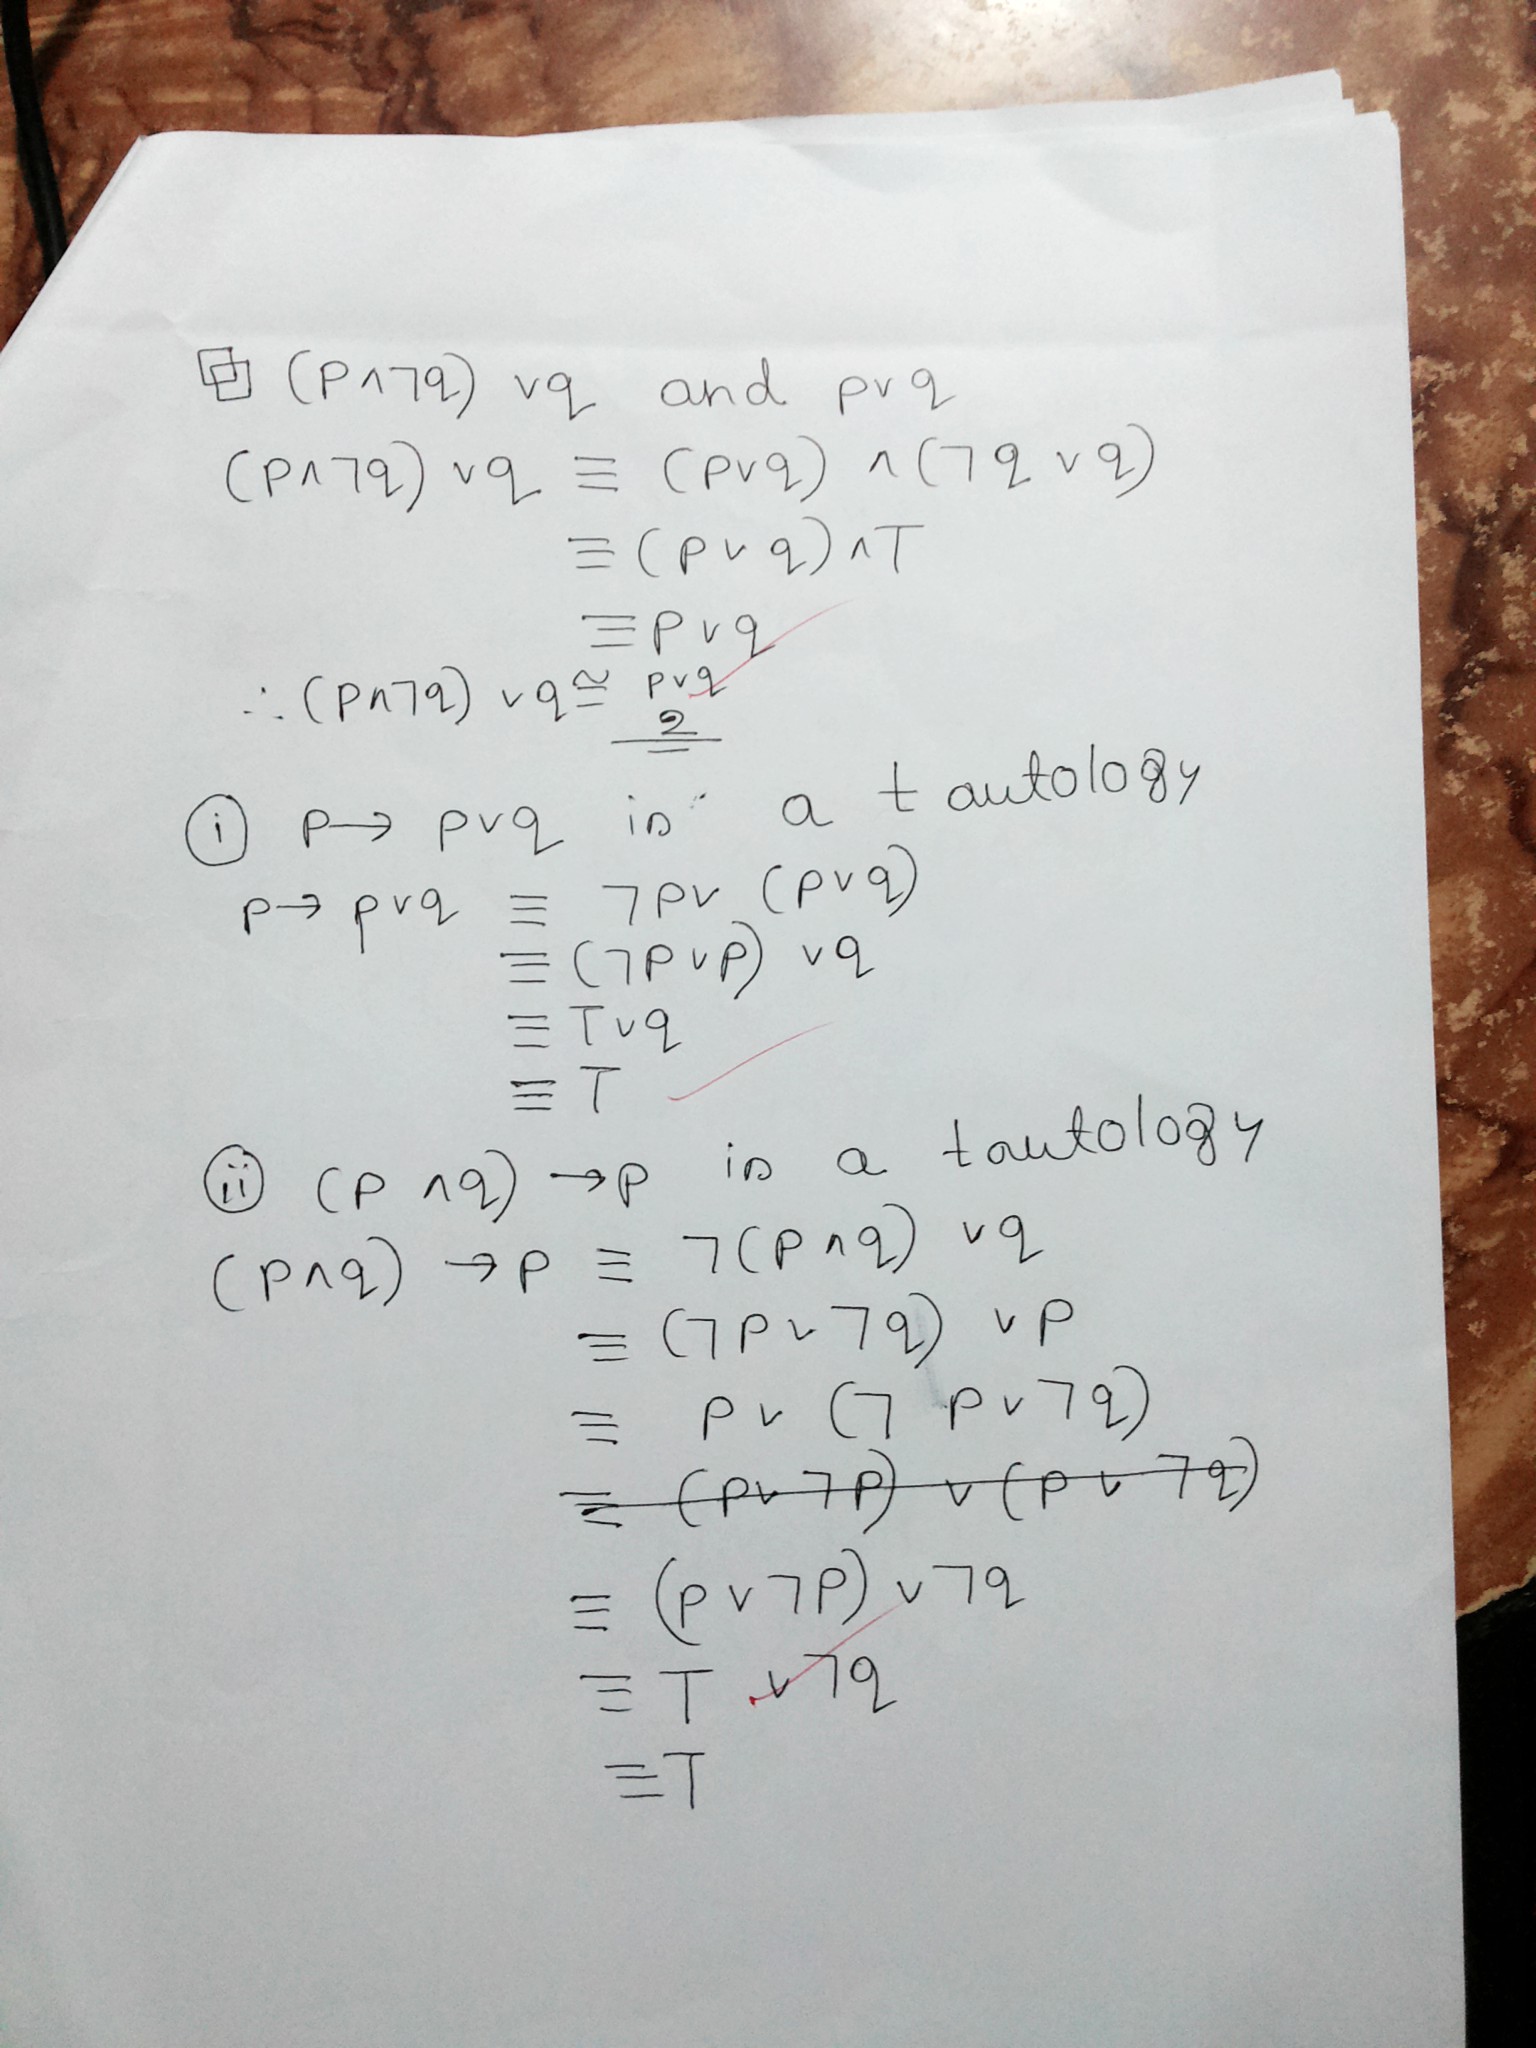 (p∧¬q) ∨q and p∨q
(p∧¬q) ∨q ≡ (p∨q) ∧(¬q ∨q)
≡ (p∨q)∧T
≡ p∨q
∴ (p∧¬q) ∨q ≅ p∨q
2
(i) p→ p∨q is a tautology
p→ p∨q ≡ ¬p∨ (p∨q)
≡ (¬p∨p) ∨q
≡ T∨q
≡ T
(ii) (p ∧q) →p is a tautology
(p∧q) →p ≡ ¬(p∧q) ∨q
≡ (¬p∨¬q) ∨p
≡ p∨ (¬p∨¬q)
≡ (p∨¬p) ∨ (p∨¬q)
≡ (p∨¬p) ∨¬q
≡ T ∨¬q
≡T